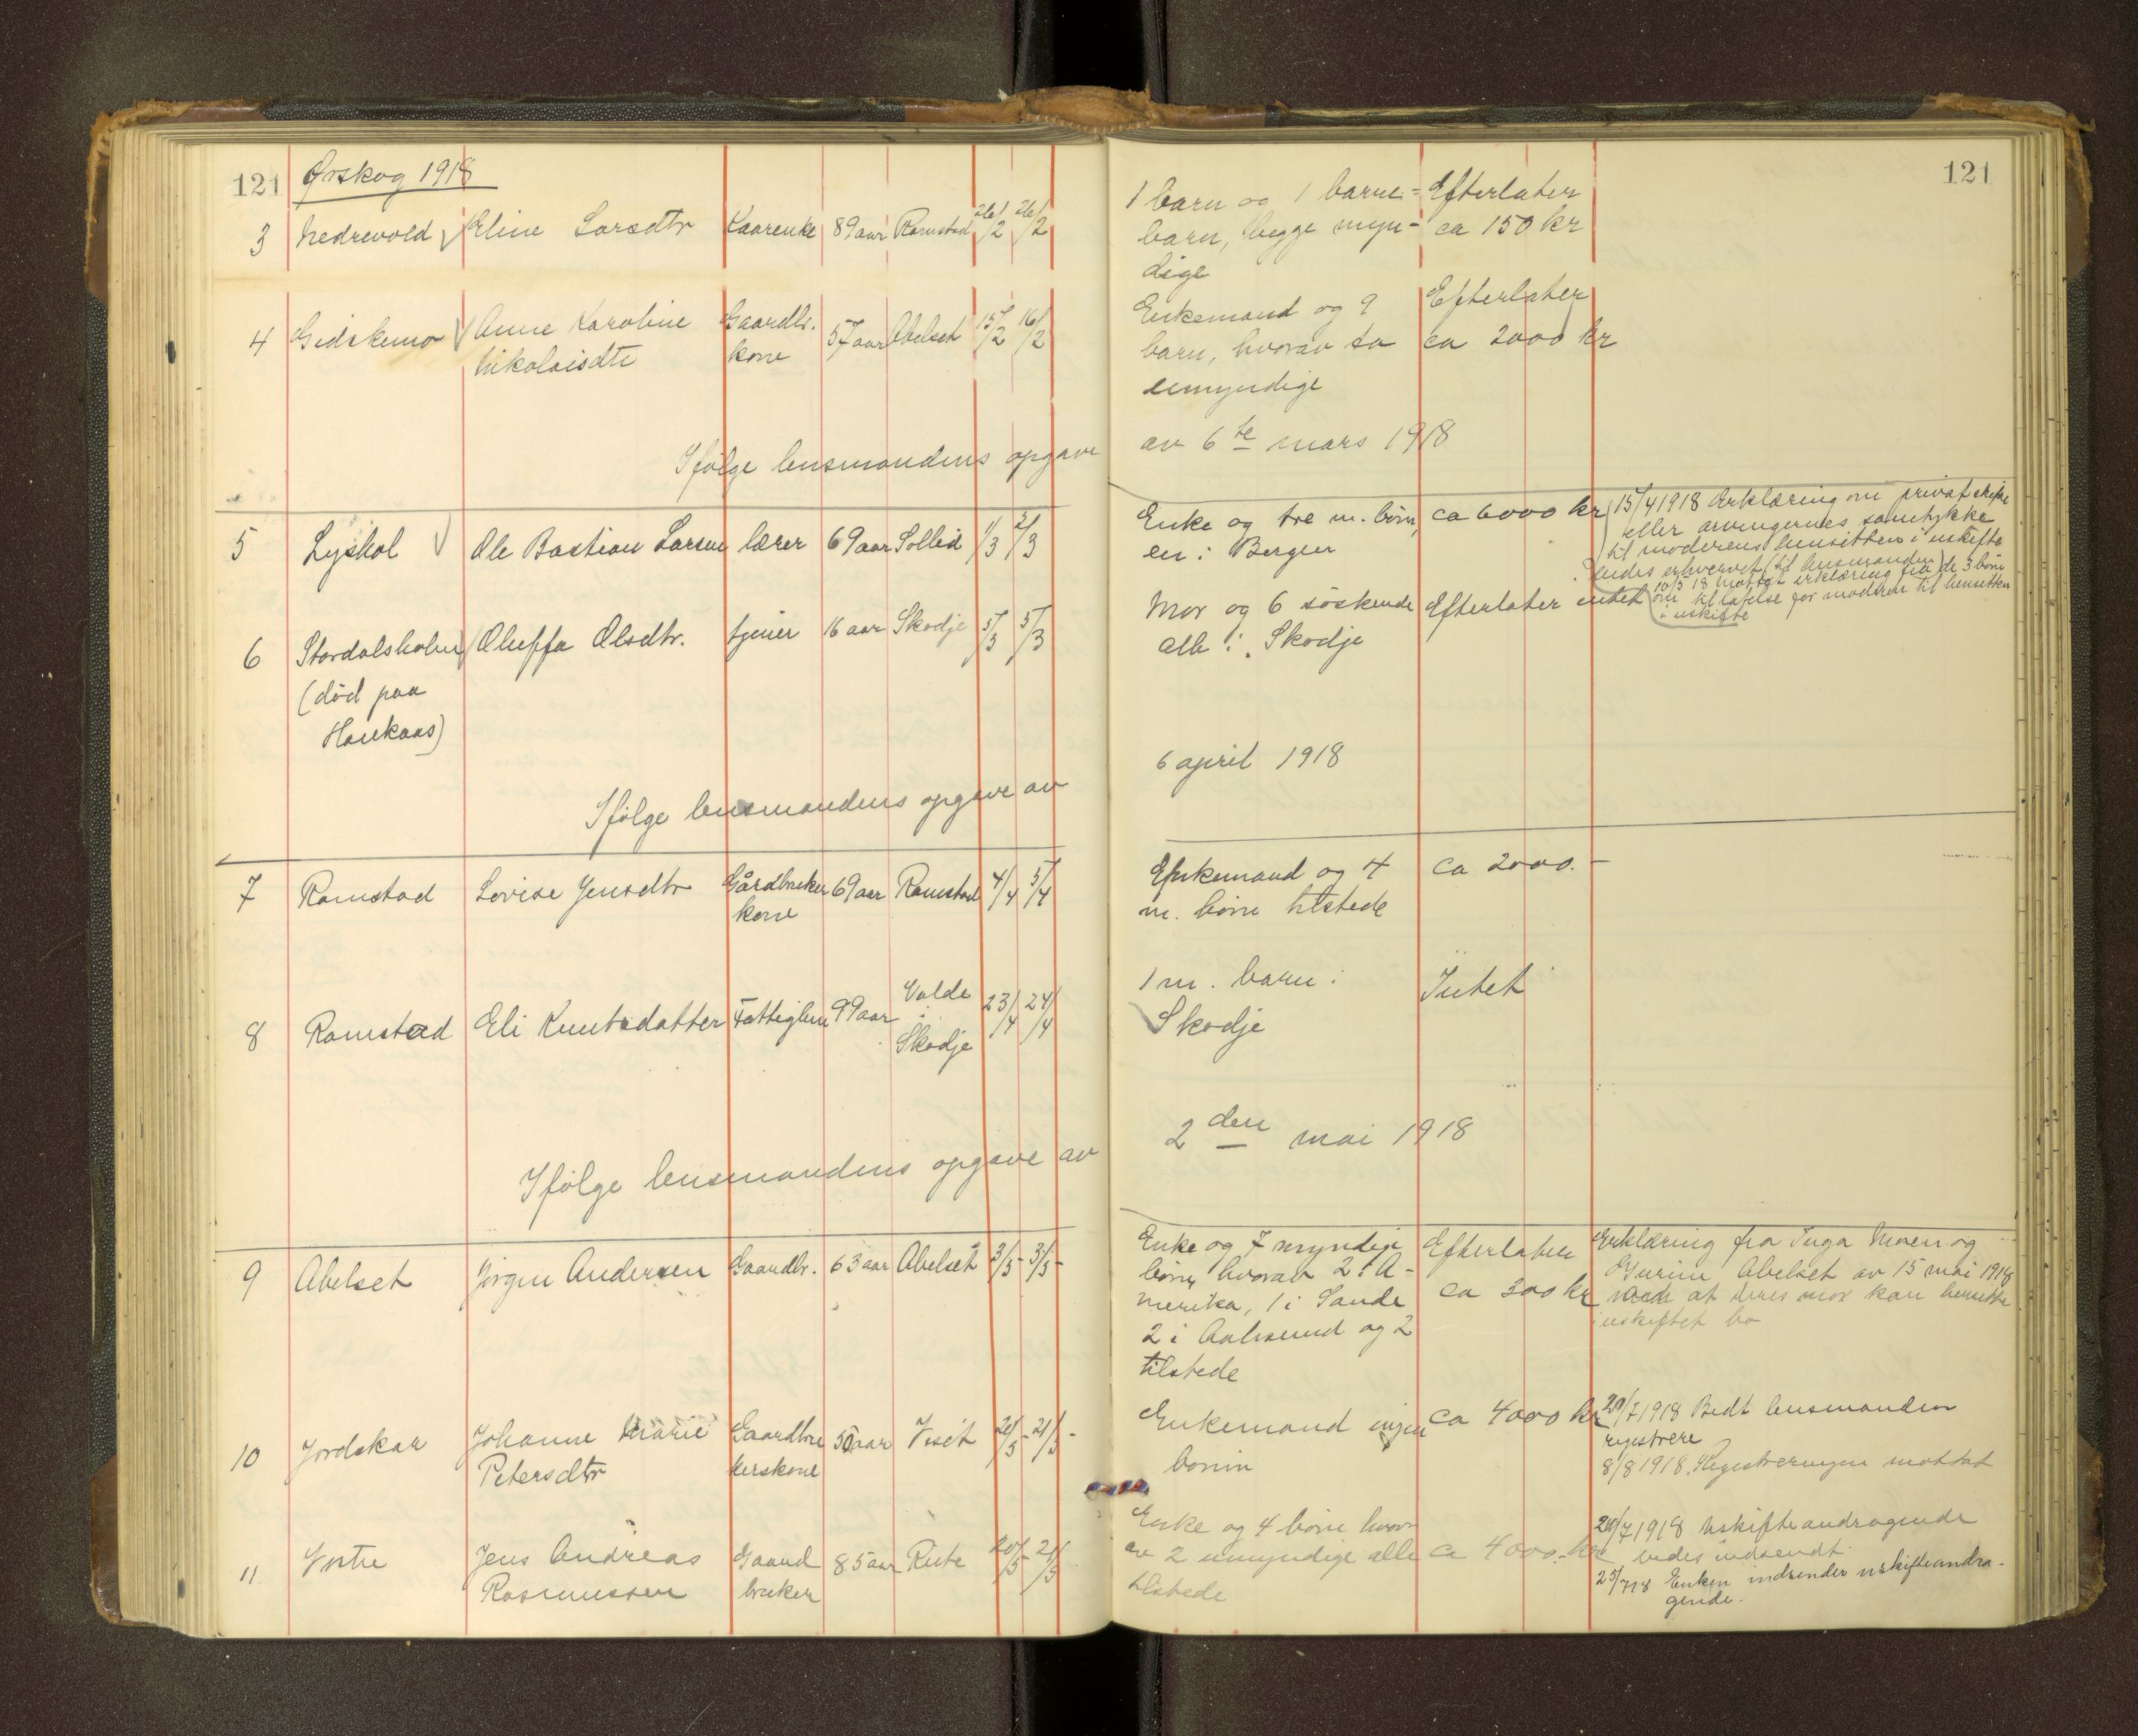 121 Ørskog 1918
121
3 Nedrevold Eline Larsdtr Kaarenke 89 aar Ramstad 26/2 26/2
1 barn og 1 barne= Efterlater
barn, begge myn- ca 150 kr
dige
4 Gidskemo Anne Karoline Gaardbr. 57 aar Abelset 15/2 16/2
Nikolaisdtr kone
Enkemand og 9 Efterlater
barn, hvorav to ca 2000 kr
umyndige
Ifølge lensmandens opgave av 6te mars 1918
5 Lyshol Ole Bastian Larsen lærer 69 aar Sollid 1/3 2/3
Enke og tre m. børn, ca 6000 kr
en i Bergen
15/4 1918 Erklæring om privat skifte
eller arvingernes samtykke
til moderens hensitten i uskifte
bedes erhvervet (til lensmanden)
10/5 18 mottat erklæring fra de 3 børn
om tillatelse for moderen til hensitten
i uskifte
6 Stordalsholm Oluffa Olsdtr. tjener 16 aar Skodje 5/3 5/3
(død paa
Haukaas)
Mor og 6 søskende Efterlater intet
alle i Skodje
Ifølge lensmandens opgave av 6 april 1918
7 Ramstad Lovise Jensdtr Gårdbruker 69 aar Ramstad 4/4 5/4
kone
Enkemand og 4 ca 2000.-
m. børn tilstede
8 Ramstad Eli Knutsdatter Fattiglem 99 aar Valde i Skodje 23/4 24/4
1 m. barn i Intet
Skodje
Ifølge lensmandens opgave av 2den mai 1918
9 Abelset Jørgen Andersen Gaardbr. 63 aar Abelset 3/5- 3/5-
Enke og 7 myndige Efterlater
børn, hvorav 2 i A- ca 300 kr
merika, 1 i Sande
2 i Aalesund og 2
tilstede
Erklæring fra Inga Moen og
Gurine Abelset av 15 mai 1918
at deres mor kan hensitte
i uskiftet bo
10 Jordskar Johanne Marie Gaardbru 50 aar Viset 20/5- 21/5-
Petersdtr kerskone
Enkemand ingen ca 4000 kr
børn
20/7 1918 Bedt lensmanden
registrere
8/8 1918. Registreringen mottat
11 Vestre Jens Andreas Gaard 85 aar Rute 20/5- 21/5
Rasmussen bruker
Enke og 4 børn hvor
av 2 umyndige alle ca 4000.- kr
tilstede
20/7 1918 Uskifteandragende
bedes indsendt
25/7 18 Enken indsender uskifteandra-
gende.